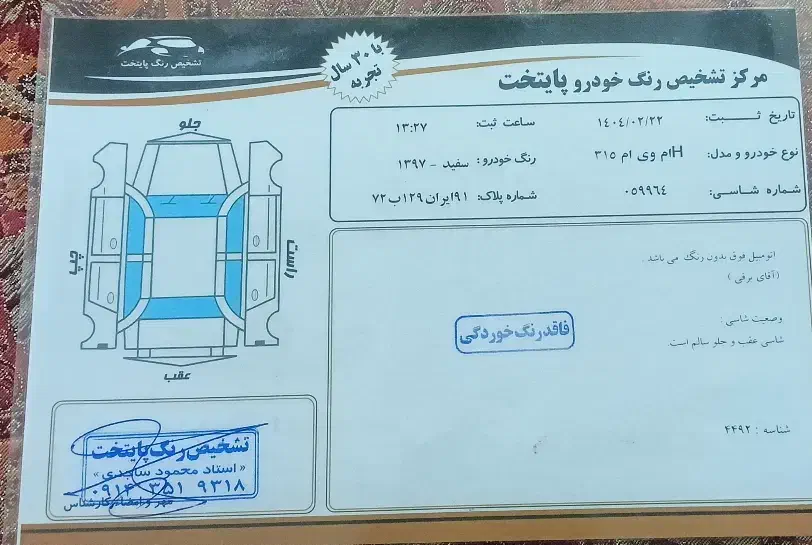 تشخیص رنگ پایتخت
با ۳۰ سال تجربه
مرکز تشخیص رنگ خودرو پایتخت
تاریخ ثبت: ۱۴۰۴/۰۲/۲۲ ساعت ثبت: ۱۳:۲۷
نوع خودرو و مدل: Hام وی ام ۳۱۵ رنگ خودرو: سفید - ۱۳۹۷
شماره شاسی: ۰۵۹۹۶۴ شماره پلاک: ۹۱ایران۱۲۹ب۷۲
جلو
چپ
راست
عقب
اتومبیل فوق بدون رنگ می باشد.
(آقای برقی)
فاقد رنگ خوردگی
وضعیت شاسی:
شاسی عقب و جلو سالم است.
شناسه: ۴۴۹۲
تشخیص رنگ پایتخت
«استاد محمود ساجدی»
۰۹۱۴ ۳۵۱ ۹۳۱۸
مهر و امضاء کارشناس